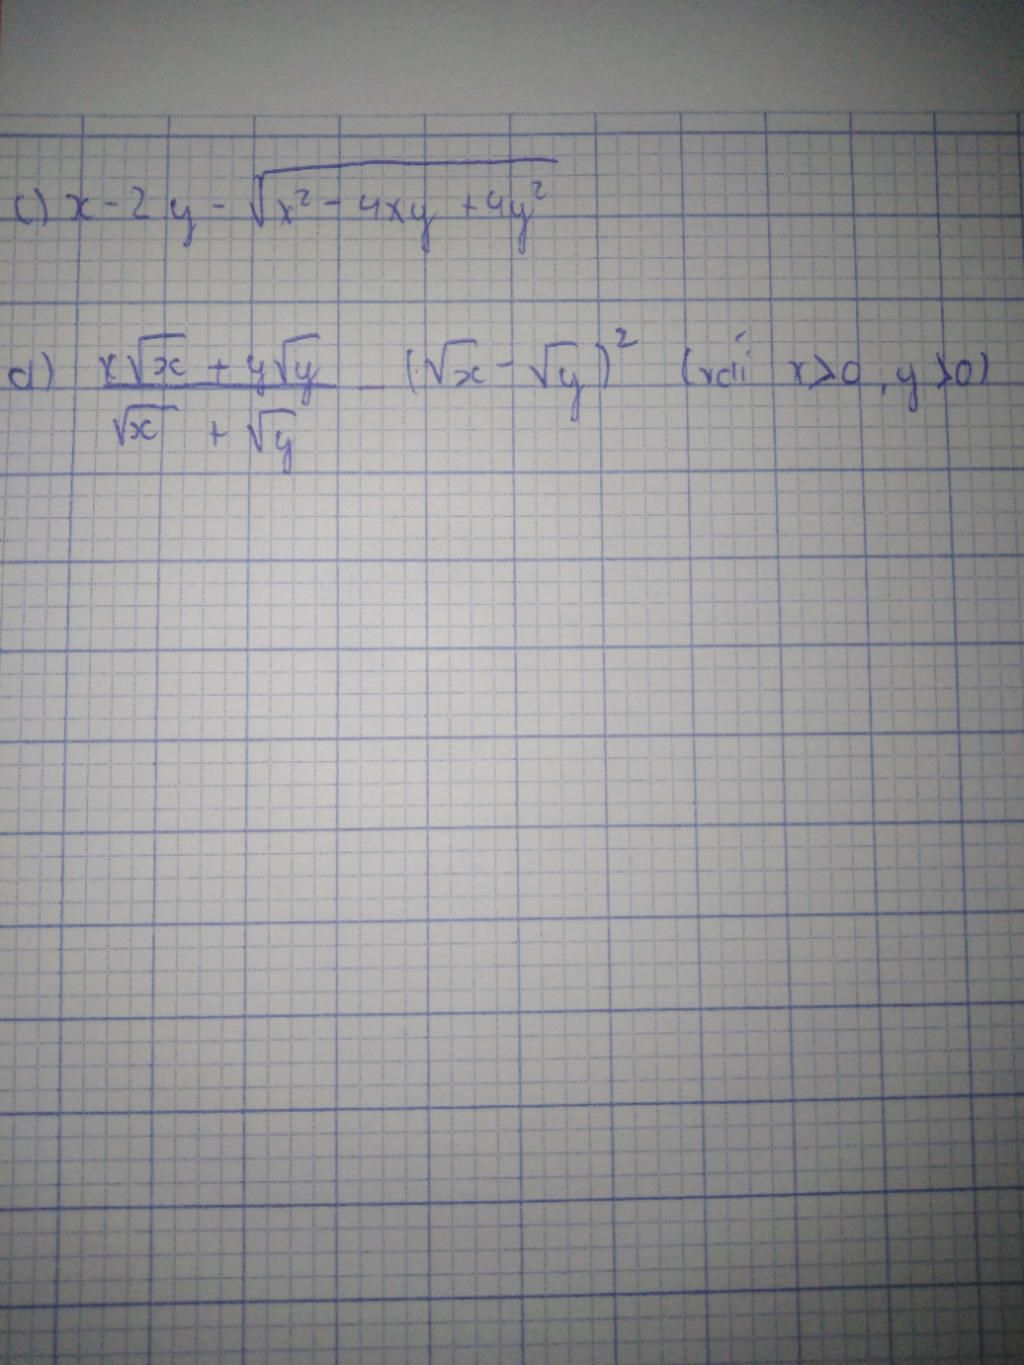 c) x - 2y - √(x² - 4xy + 4y²)
d) (x√x + y√y)/(√x + √y) - (√x - √y)² (với x > 0, y > 0)